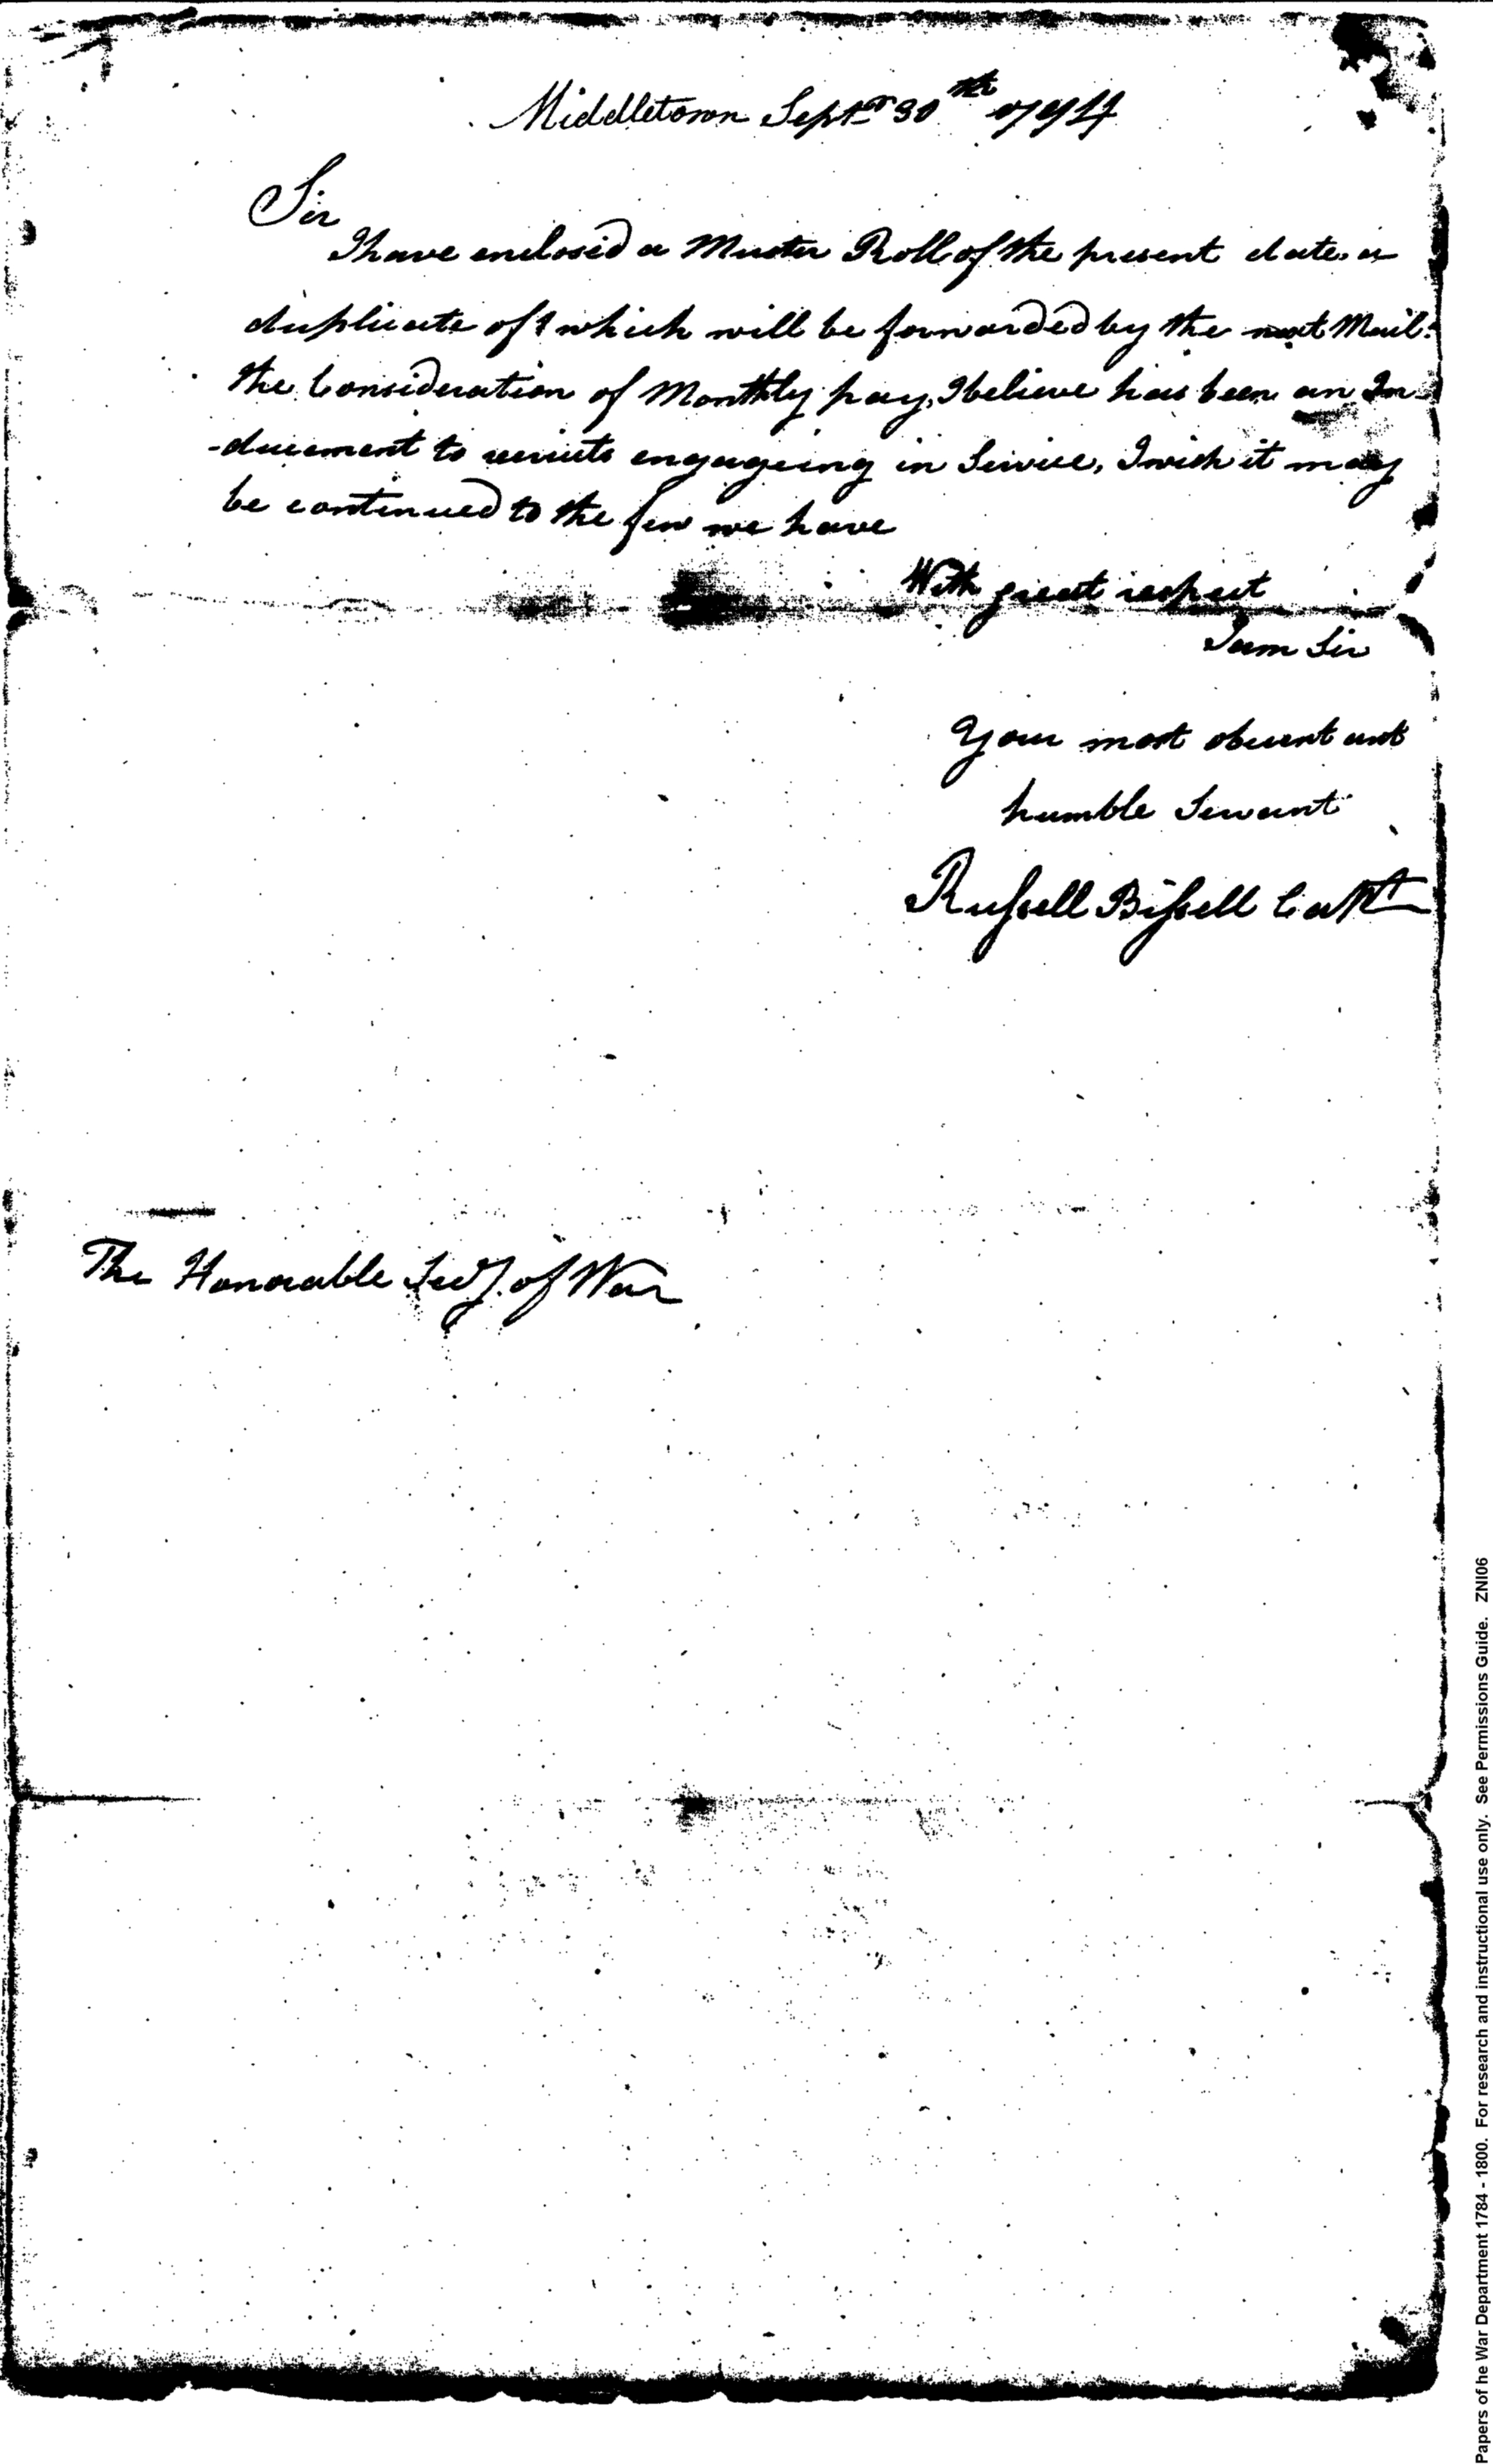 Middletown Septr 30th 1794
Sir
I have enclosed a Muster Roll of the present date. a
duplicate of which will be forwarded by the next Mail.
the Consideration of Monthly pay, I believe has been an In
-ducement to recruits engageing in Service, I wish it may
be continued to the few we have
With great respect
I am Sir
Your most obedient and
humble Servant
Russell Bissell Capt
The Honorable Secy. of War
Papers of he War Department 1784 - 1800. For research and instructional use only. See Permissions Guide. ZNI06